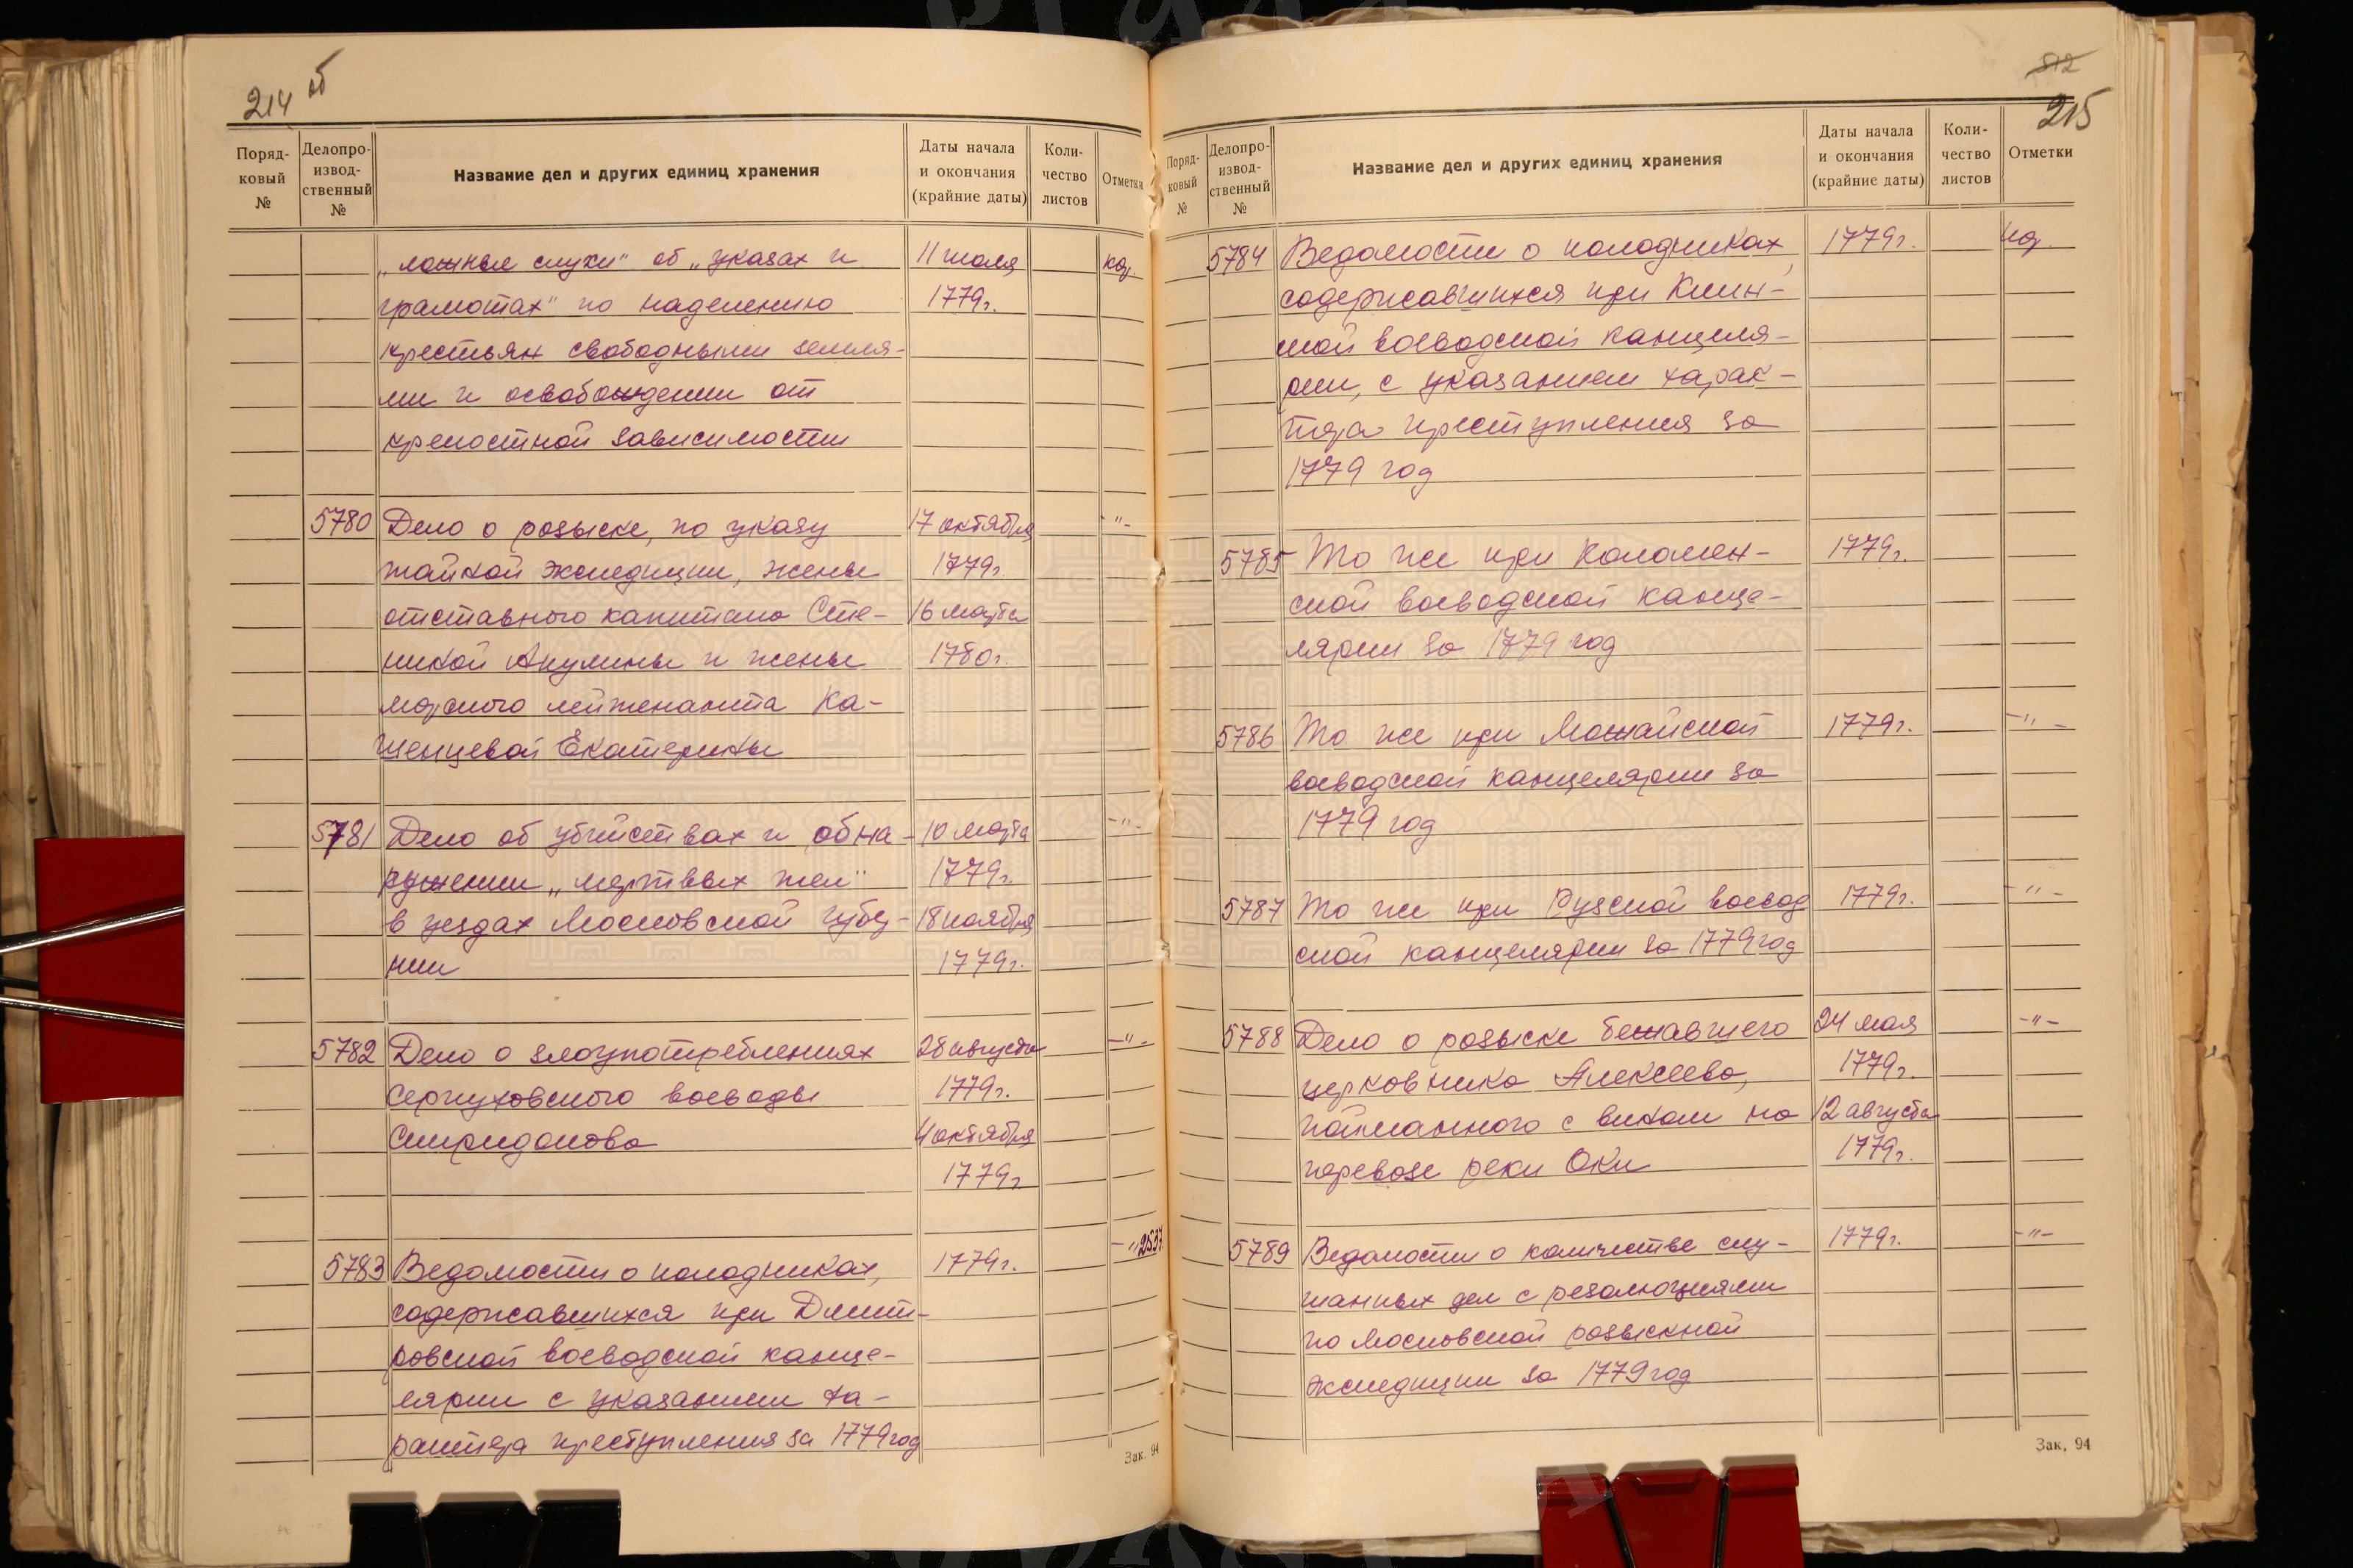 214 об
Поряд-
ковый
№
Делопро-
извод-
ственный
№
Название дел и других единиц хранения
Даты начала
и окончания
(крайние даты)
Коли-
чество
листов
Отметки
„ложные слухи“ об „указах и 11 июля
грамотах“ по наделению 1779г.
крестьян свободными земля-
ми и освобождении от
крепостной зависимости
5780 Дело о розыске, по указу 17 октября -"-
тайной экспедиции, жены 1779г
отставного капитана Сте- 16 марта
пикой Акулины и жены 1780г.
морского лейтенанта Ка-
шенцевой Екатерины
5781 Дело об убийствах и обна- 10 марта -"-
ружении „мертвых тел“ 1779г.
в уездах Московской губер- 18 ноября
нии 1779г.
5782 Дело о злоупотреблениях 28 августа -"-
Серпуховского воеводы 1779г.
Спиридонова 4 октября
1779г
5783 Ведомости о колодниках, 1779г. -"-
содержавшихся при Дмит-
ровской воеводской канце-
лярии с указанием ха-
рактера преступления за 1779 год
Зак. 94
812
215
Поряд-
ковый
№
Делопро-
извод-
ственный
№
Название дел и других единиц хранения
Даты начала
и окончания
(крайние даты)
Коли-
чество
листов
Отметки
5784 Ведомости о колодниках, 1779г.
содержавшихся при Клин-
ской воеводской канцеля-
рии, с указанием харак-
тера преступления за
1779 год
5785 То же при Коломен- 1779г.
ской воеводской канце-
лярии за 1779 год
5786 То же при Можайской 1779г. -"-
воеводской канцелярии за
1779 год
5787 То же при Рузской воевод 1779г. -"-
ской канцелярии за 1779 год
5788 Дело о розыске бежавшего 24 мая -"-
церковника Алексеева, 1779г.
пойманного с вином на 12 августа
перевозе реки Оки 1779г.
5789 Ведомости о количестве слу- 1779г. -"-
шанных дел с резолюциями
по Московской розыскной
экспедиции за 1779 год
Зак. 94